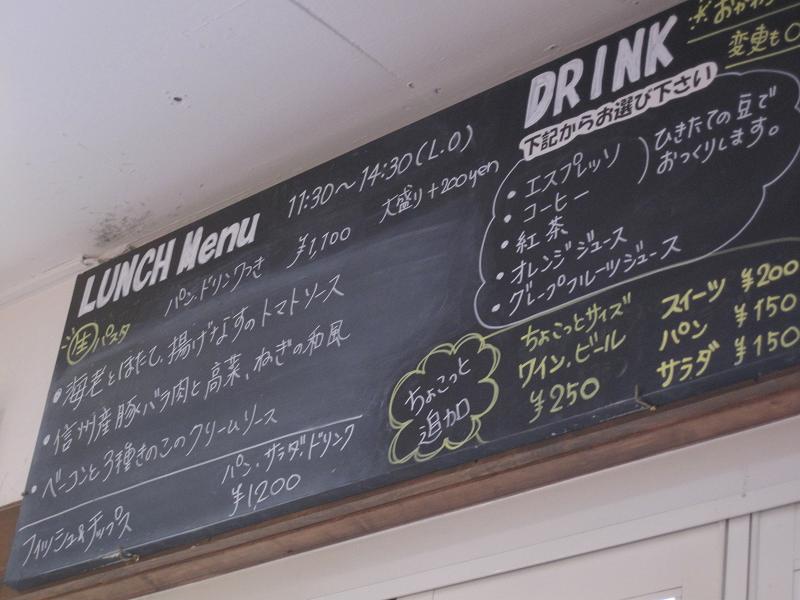 LUNCH Menu 11:30〜14:30(L.O)
生パスタ パン、ドリンクつき ¥1,100 大盛り+200yen
• 海老とほたて、揚げなすのトマトソース
• 信州産豚バラ肉と高菜、ねぎの和風
• ベーコンと3種きのこのクリームソース
フィッシュ&チップス パン、サラダ、ドリンク
¥1,200
DRINK
※おかわ
変更も
下記からお選び下さい
• エスプレッソ
• コーヒー
ひきたての豆で
おつくりします。
• 紅茶
• オレンジジュース
• グレープフルーツジュース
ちょこっと
追加
ちょこっとサイズ
ワイン、ビール
¥250
スイーツ ¥200
パン ¥150
サラダ ¥150